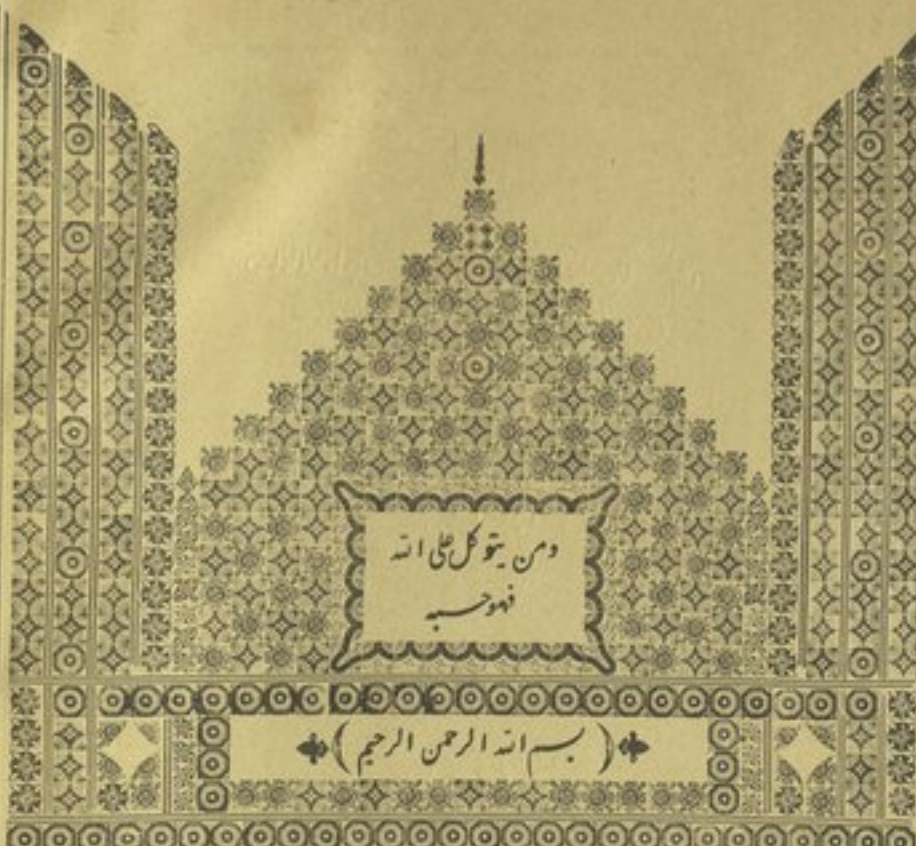 ومن يتوكل على الله
فهو حسبه
( بسم الله الرحمن الرحيم )